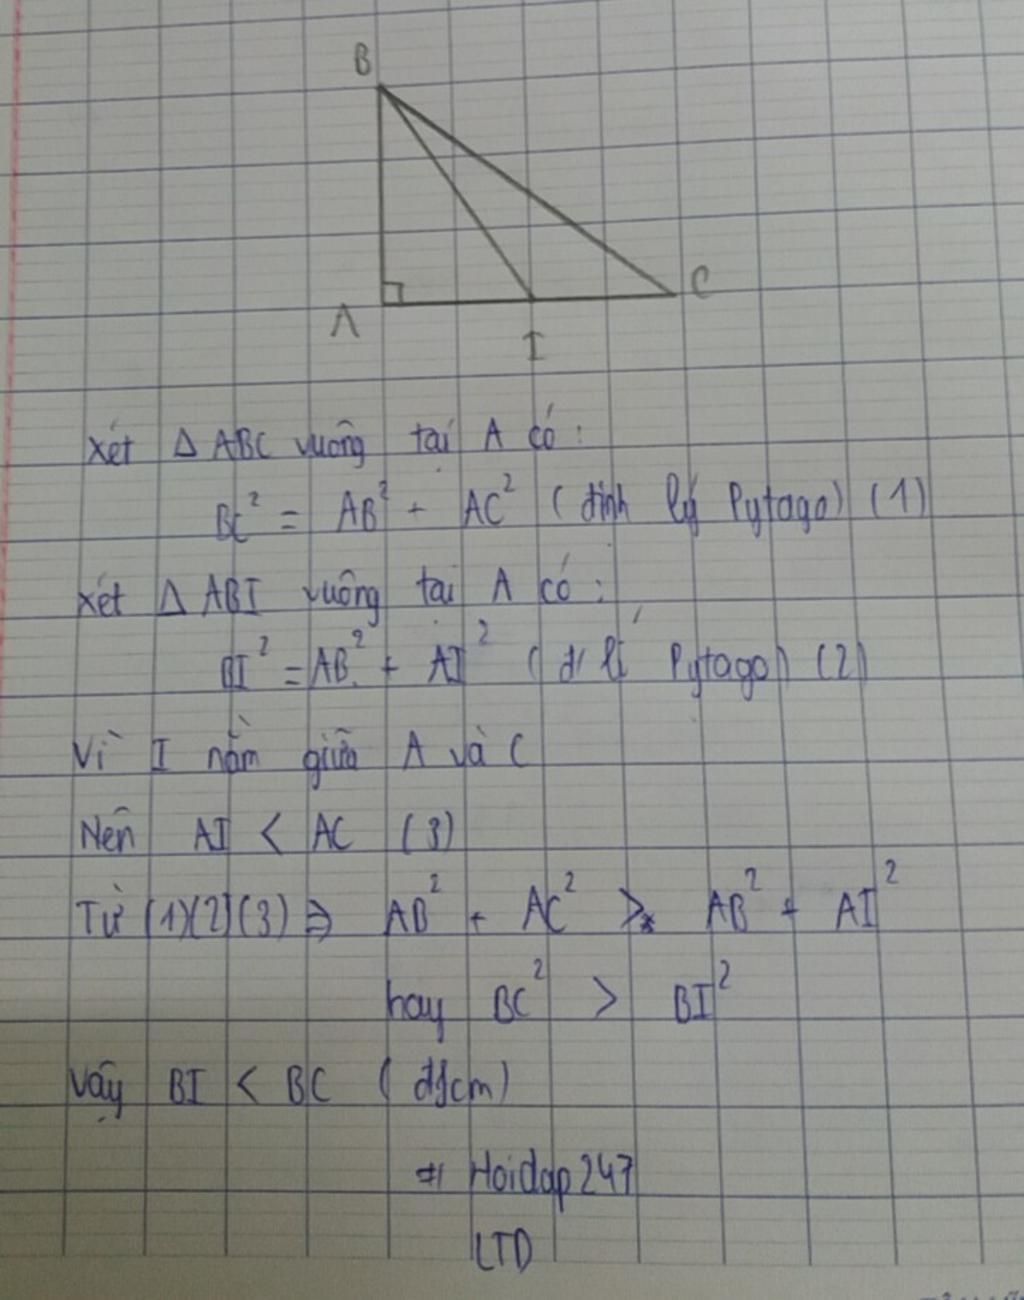 B
A
I
C
Xét Δ ABC vuông tại A có:
BC² = AB² + AC² (định lý Pytago) (1)
Xét Δ ABI vuông tại A có:
BI² = AB² + AI² (đ/lí Pytago) (2)
Vì I nằm giữa A và C
Nên AI < AC (3)
Từ (1)(2)(3) ⇒ AB² + AC² > AB² + AI²
hay BC² > BI²
Vậy BI < BC (đfcm)
# Hoidap247
LTD